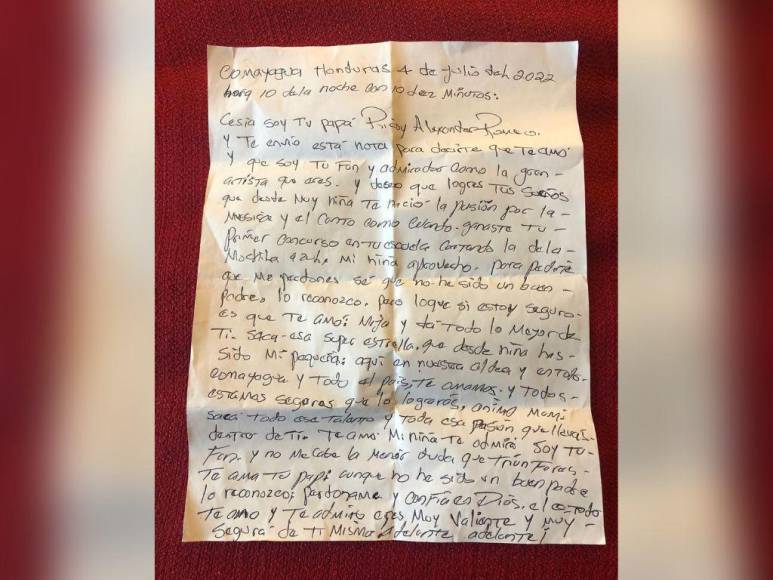 Comayagua Honduras 4 de Julio deh 2022
hora 10 de la noche con 10 diez Minutos:
Cesia soy Tu papá Alexander Romero.
y Te envio está nota para decirte que Te amo
y que soy Tu Fan y admirador como la gran
artista que eres. y deseo que logres Tus sueños
que desde Muy niña Te nació la pasión por la
Musica y el Canto como Cuando ganaste Tu
primer Concurso en Tu escuela Cantando la de la
Mochila azul. Mi niña aprovecho. para pedirte
que Me perdones sé que no he sido un buen
padre, lo reconozco, pero lo que si estoy seguro
es que Te amo: Mija y dá Todo lo Mejor de
Ti. saca esa super estrella. que desde niña has
sido Mi pequeña: aqui en nuestra aldea y en Toda
Comayagua y Todo el pais, Te amamos. y Todos
estamos seguros que lo lograrás, animo Mami
sacá Todo ese Talento y Toda esa pasión que llevas
dentro de Ti. Te amo Mi niña Te admiro soy Tu
Fan. y no Me cabe la Menor duda que Triunfaras
Te ama Tu papi aunque no he sido un buen padre
lo reconozco; perdoname y confia en Dios. el es Todo
Te amo y Te admiro eres Muy Valiente y Muy
segura de Ti Misma. adelante adelante!